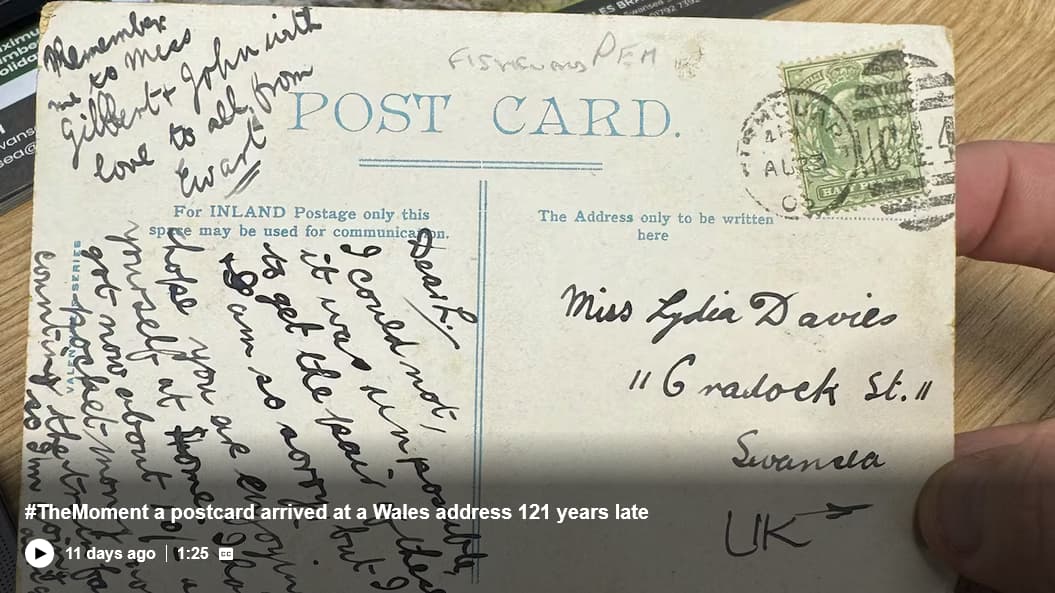 Remember
me to Miss
Gilbert + John with
love to all from
Ewart
PEM
POST CARD.
For INLAND Postage only this
space may be used for communication.
The Address only to be written
here
VALENTINES SERIES
AU 23
HALF PENNY
Dear L.
I could not,
it was impossible,
to get the pair of these
I am so sorry, but I
hope you are enjoying
yourself at home. I
got now about 10/- a
pocket-money not
counting the train
so I'm
Miss Lydia Davies
"Cradock St."
Swansea
UK
#TheMoment a postcard arrived at a Wales address 121 years late
11 days ago | 1:25 CC